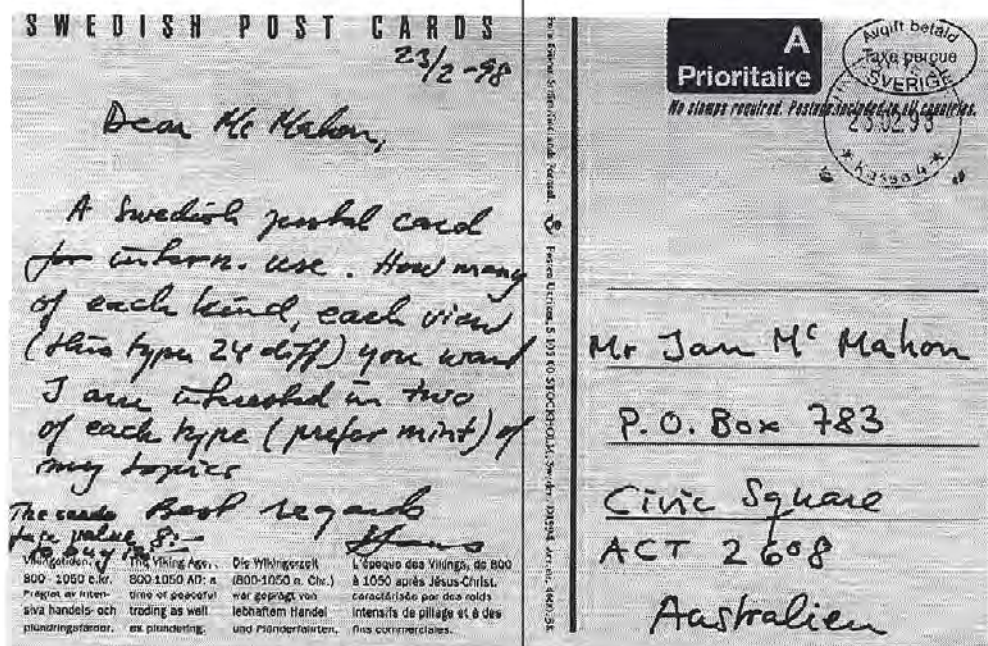 SWEDISH POST CARDS
23/2 -98
Dear Mc Mahon,
A Swedish postal card
for intern. use. How many
of each kind, each view
(this type 24 diff) you want
I am interested in two
of each type (prefer mint) of
my topics
Best regards
The cards
face value 8:-
to buy
Hans
Vikingatiden,
800 - 1050 e.kr.
Präglat av inten-
siva handels- och
plundringsfärder.
The Viking Age,
800-1050 AD: a
time of peaceful
trading as well
as plundering.
Die Wikingerzeit
(800-1050 n. Chr.)
war geprägt von
lebhaftem Handel
und Plünderfahrten.
L'époque des Vikings, de 800
à 1050 après Jésus-Christ,
caractérisée par des raids
intensifs de pillage et à des
fins commerciales.
Posten Frimärken, S-105 02 STOCKHOLM, Sweden.
A
Prioritaire
Avgift betald
Taxe perçue
SVERIGE
No stamps required. Postage included to all countries.
23.02.98
* Kassa 4 *
Mr Jan Mc Mahon
P.O. Box 783
Civic Square
ACT 2608
Australien